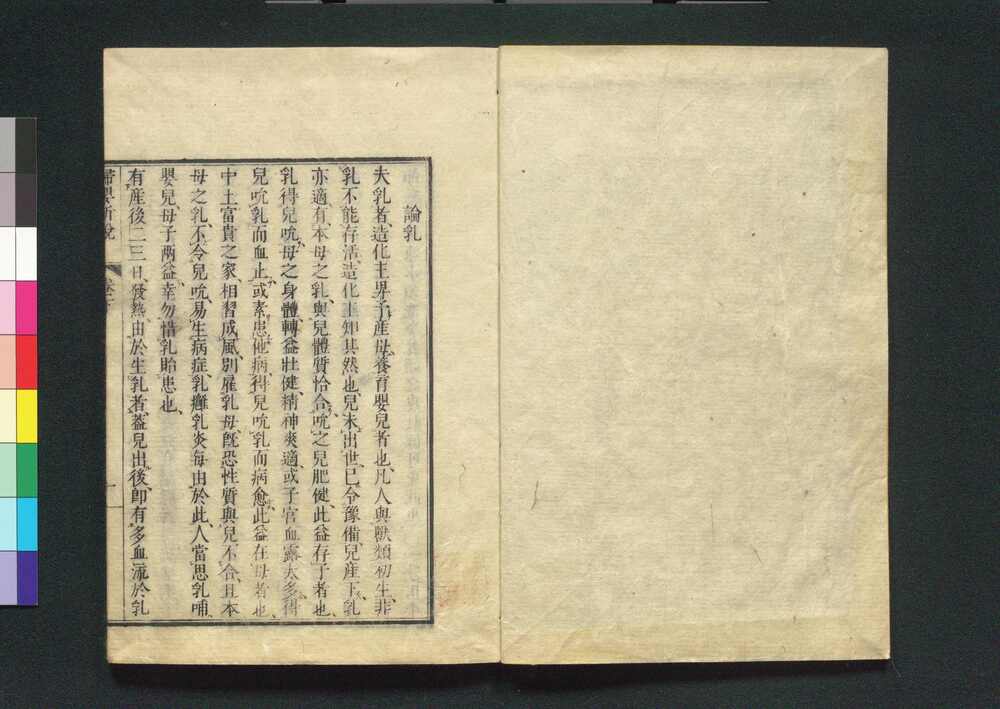 論乳
夫乳者造化主畀予産母養育嬰兒者也、凡人與獸類初生非
乳不能存活、造化主知其然也、兒未出世已令豫備、兒産下、乳
亦適有、本母之乳、與兒體質恰合、吮之兒肥健、此益存于者也、
乳得兒吮、母之身體轉益壯健、精神爽適、或子宮血露太多、得
兒吮乳而血止、或素患他病、得兒吮乳而病愈、此益在母者也、
中土富貴之家相習成風、別雇乳母、既恐性質與兒不合、且本
母之乳、不令兒吮、易生病症、乳癰乳炎每由於此、人當思乳哺
嬰兒、母子兩益、幸勿惜乳貽患也、
有産後二三日、發熱、由於生乳者、蓋兒出後、卽有多血流於乳
婦嬰新說